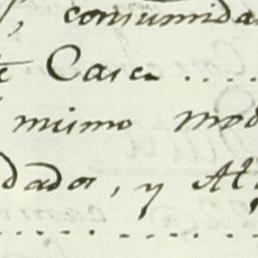 consumida
Casa ....
mismo mod
dados, y